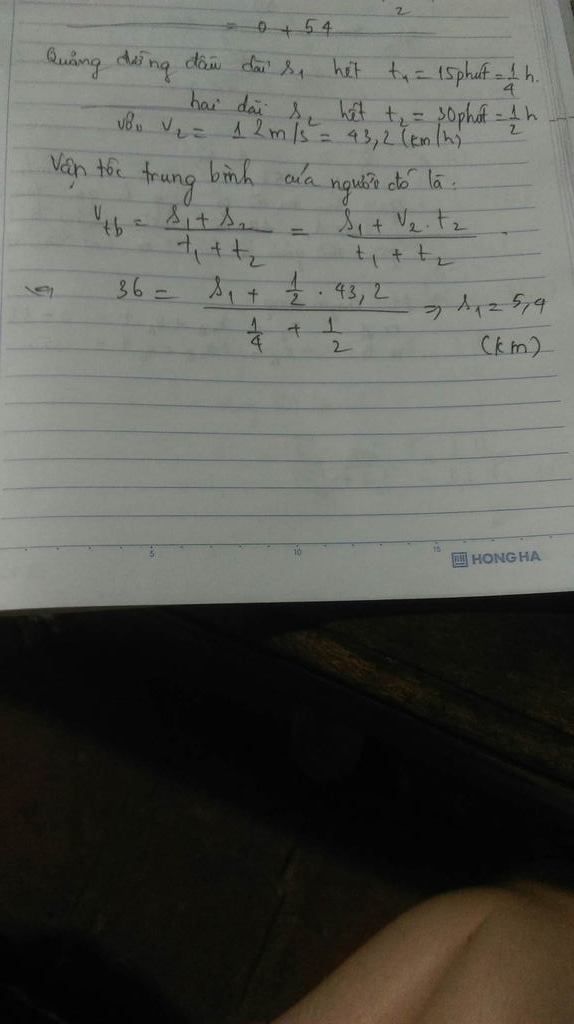 2
= 0 + 54
Quãng đường đầu dài s₁ hết t₁ = 15phút = 1/4 h.
hai dài s₂ hết t₂ = 30phút = 1/2 h
với v₂ = 12m/s = 43,2 (km/h)
Vận tốc trung bình của người đó là:
v_tb = (s₁ + s₂)/(t₁ + t₂) = (s₁ + v₂ . t₂)/(t₁ + t₂)
⇔ 36 = (s₁ + 1/2 . 43,2)/(1/4 + 1/2) ⇒ s₁ = 5,4
(km)
5 10 15
HONG HA